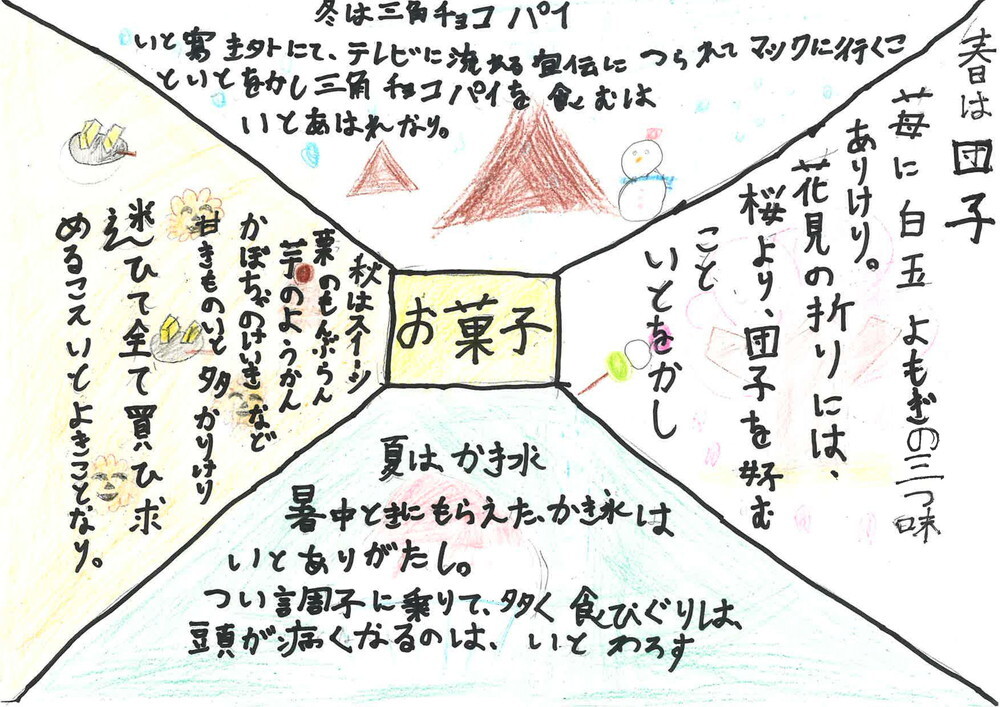 お菓子
春は団子
苺に白玉よもぎの三つ味
ありけり。
花見の折りには、
桜より、団子を好む
こと
いとをかし
夏は、かき氷
暑中ときにもらえた、かき氷は
いとありがたし。
つい調子に乗りて、多く食ひぐりしは、
頭が痛くなるのは、いとわろす
秋はスイーツ
栗のもんぶらん
芋のようかん
かぼちゃのけいきなど
甘きものいと多かりけり
迷ひて全て買ひ求
めるこそいとよきことなり。
冬は三角チョコパイ
いと寒き外にて、テレビに流れる宣伝につられてマックに行くこ
といとをかし三角チョコパイを食むは
いとあはれなり。